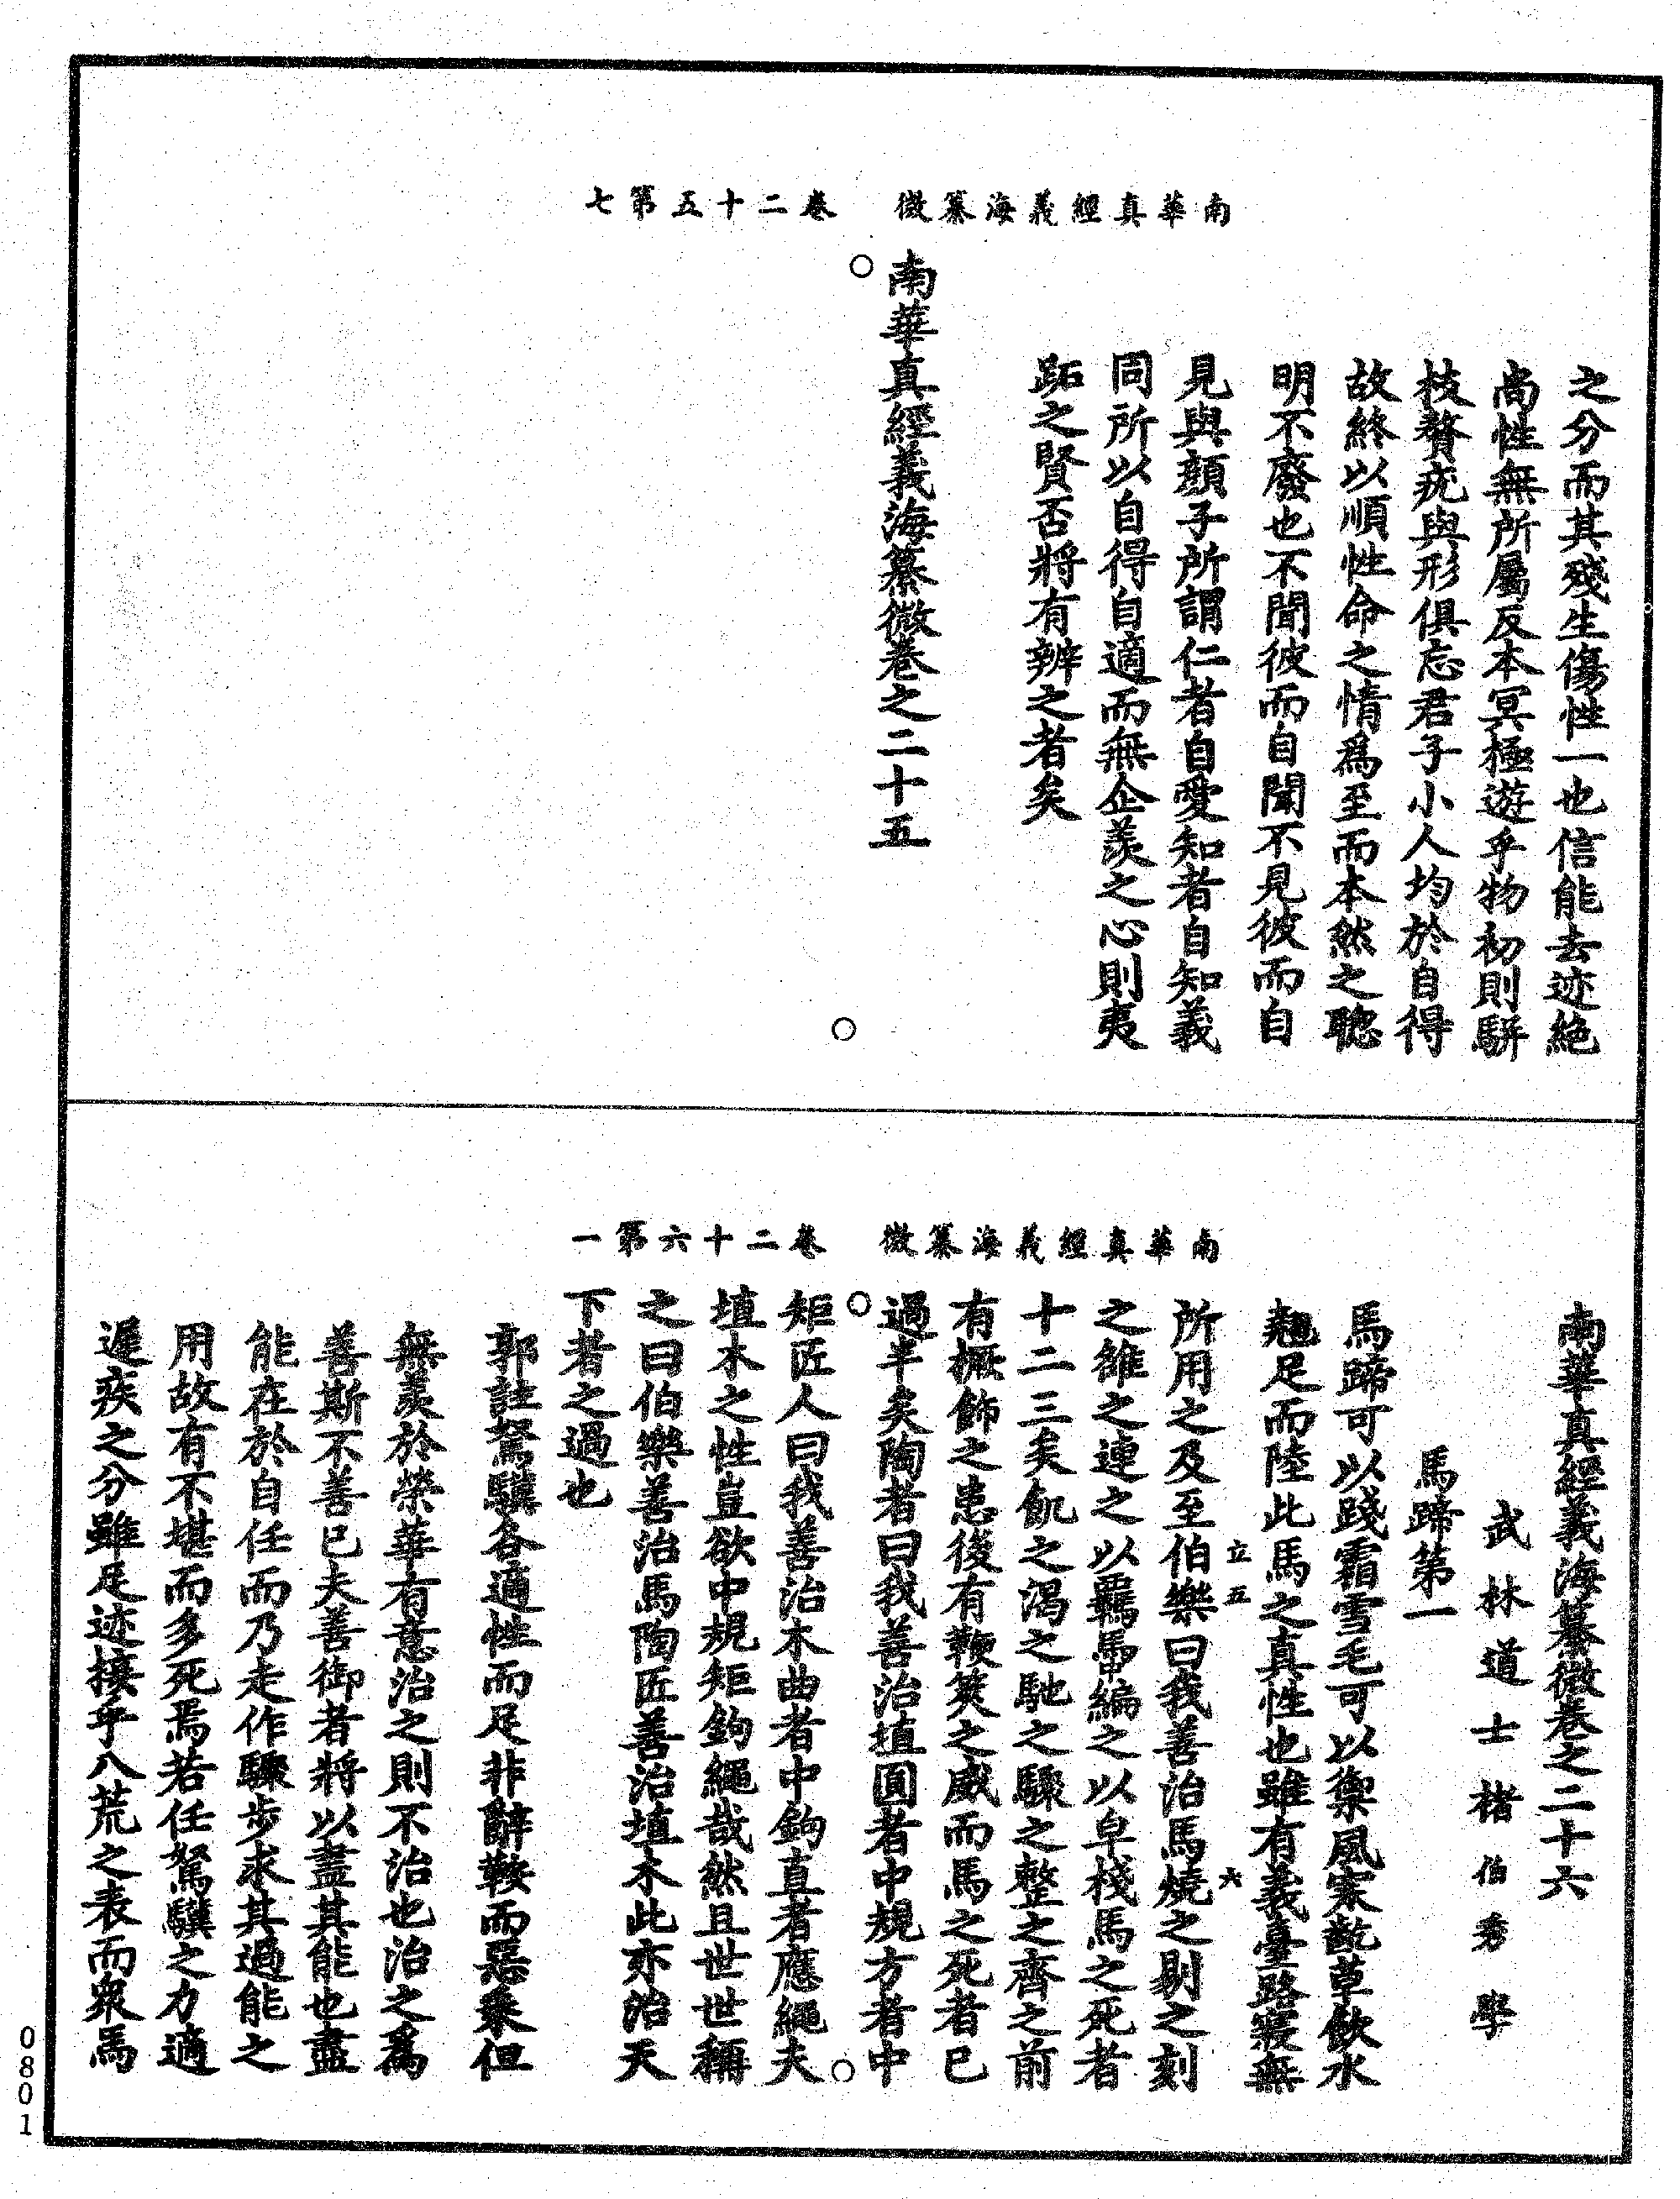 南華真經義海纂微　卷二十五第七
之分而其殘生傷性一也信能去迹絶
尚性無所屬反本冥極遊乎物初則駢
枝贅疣與形俱忘君子小人均於自得
故終以順性命之情爲至而本然之聰
明不廢也不聞彼而自聞不見彼而自
見與顔子所謂仁者自愛知者自知義
同所以自得自適而無企羨之心則夷
跖之賢否將有辨之者矣
南華真經義海纂微卷之二十五
南華真經義海纂微　卷二十六第一
南華真經義海纂微卷之二十六
武林道士褚伯秀學
馬蹄第一
馬蹄可以踐霜雪毛可以禦風寒齕草飲水
翹足而陸此馬之真性也雖有義臺路寢無
立五　六
所用之及至伯樂曰我善治馬燒之剔之刻
之雒之連之以羈馽編之以皁棧馬之死者
十二三矣飢之渴之馳之驟之整之齊之前
有橛飾之患後有鞭筴之威而馬之死者已
過半矣陶者曰我善治埴圓者中規方者中
矩匠人曰我善治木曲者中鉤直者應繩夫
埴木之性豈欲中規矩鉤繩哉然且世世稱
之曰伯樂善治馬陶匠善治埴木此亦治天
下者之過也
郭註駑驥各適性而足非辭鞍而惡乘但
無羨於榮華有意治之則不治也治之爲
善斯不善已夫善御者將以盡其能也盡
能在於自任而乃走作驟步求其過能之
用故有不堪而多死焉若任駑驥之力適
遲疾之分雖足迹接乎八荒之表而衆馬
0801